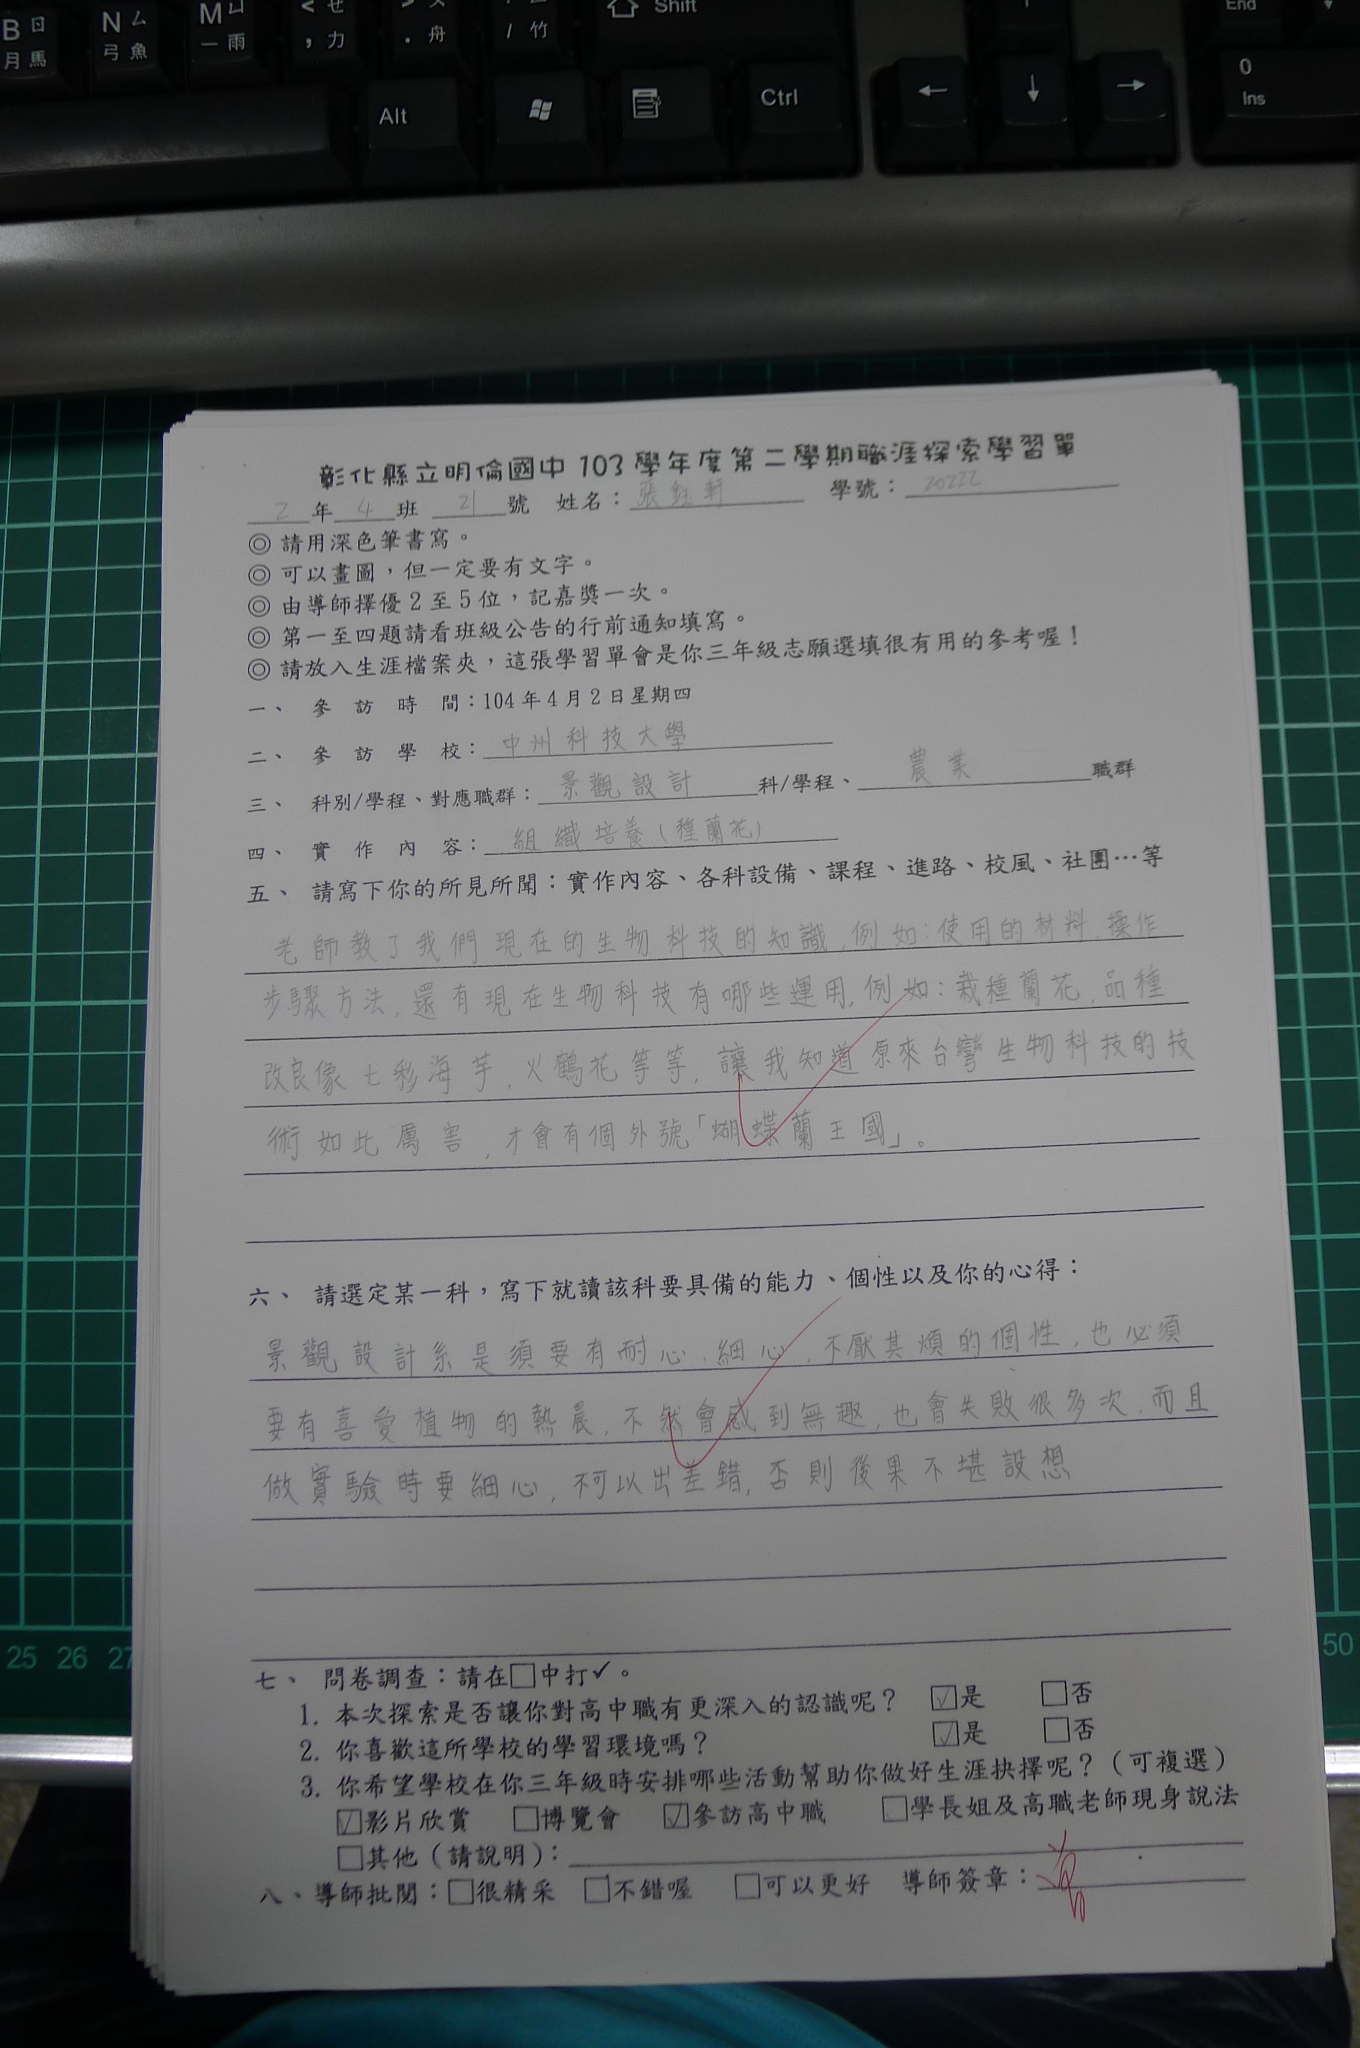 B ㄖ 月 馬
N ㄙ 弓 魚
M ㄩ 一 雨
< ㄝ , 力
> ㄡ . 舟
/ 竹
Shift
End
Alt
Ctrl
←
↓
→
0
Ins
彰化縣立明倫國中103學年度第二學期職涯探索學習單
2年4班 21號 姓名：張鈺軒 學號：20222
◎ 請用深色筆書寫。
◎ 可以畫圖，但一定要有文字。
◎ 由導師擇優2至5位，記嘉獎一次。
◎ 第一至四題請看班級公告的行前通知填寫。
◎ 請放入生涯檔案夾，這張學習單會是你三年級志願選填很有用的參考喔！
一、 參訪時間：104年4月2日星期四
二、 參訪學校：中州科技大學
三、 科別/學程、對應職群：景觀設計科/學程、農業職群
四、 實作內容：組織培養(種蘭花)
五、 請寫下你的所見所聞：實作內容、各科設備、課程、進路、校風、社團…等
老師教了我們現在的生物科技的知識,例如:使用的材料,操作
步驟方法,還有現在生物科技有哪些運用,例如:栽種蘭花,品種
改良像七彩海芋,火鶴花等等,讓我知道原來台灣生物科技的技
術如此厲害,才會有個外號「蝴蝶蘭王國」。
六、 請選定某一科，寫下就讀該科要具備的能力、個性以及你的心得：
景觀設計系是須要有耐心,細心,不厭其煩的個性,也必須
要有喜愛植物的熱晨,不然會感到無趣,也會失敗很多次,而且
做實驗時要細心,不可以出差錯,否則後果不堪設想
七、 問卷調查：請在□中打✓。
1. 本次探索是否讓你對高中職有更深入的認識呢？ ☑是 □否
2. 你喜歡這所學校的學習環境嗎？ ☑是 □否
3. 你希望學校在你三年級時安排哪些活動幫助你做好生涯抉擇呢？（可複選）
☑影片欣賞 □博覽會 ☑參訪高中職 □學長姐及高職老師現身說法
□其他（請說明）：
八、導師批閱：□很精采 □不錯喔 □可以更好 導師簽章：
25 26 27
50